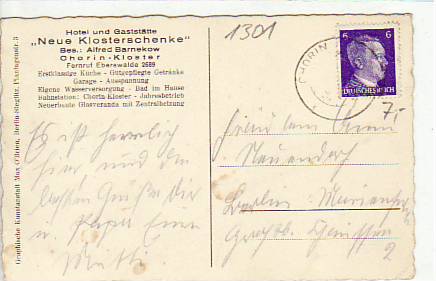 Hotel und Gaststätte
„Neue Klosterschenke"
Bes.: Alfred Barnekow
Chorin-Kloster
Fernruf Eberswalde 2689
Erstklassige Küche - Gutgepflegte Getränke
Garage - Ausspannung
Eigene Wasserversorgung - Bad im Hause
Bahnstation: Chorin-Kloster - Jahresbetrieb
Neuerbaute Glasveranda mit Zentralheizung
Graphische Kunstanstalt Max O'Brien, Berlin-Steglitz, Plantagenstr. 3
1301
CHORIN
6 6
DEUTSCHES REICH
7,-
Es ist herrlich
hier, und die
besten Grüße Dir
u. Papa Eure
Mutti.
Fräulein
Neuendorf
Berlin
2